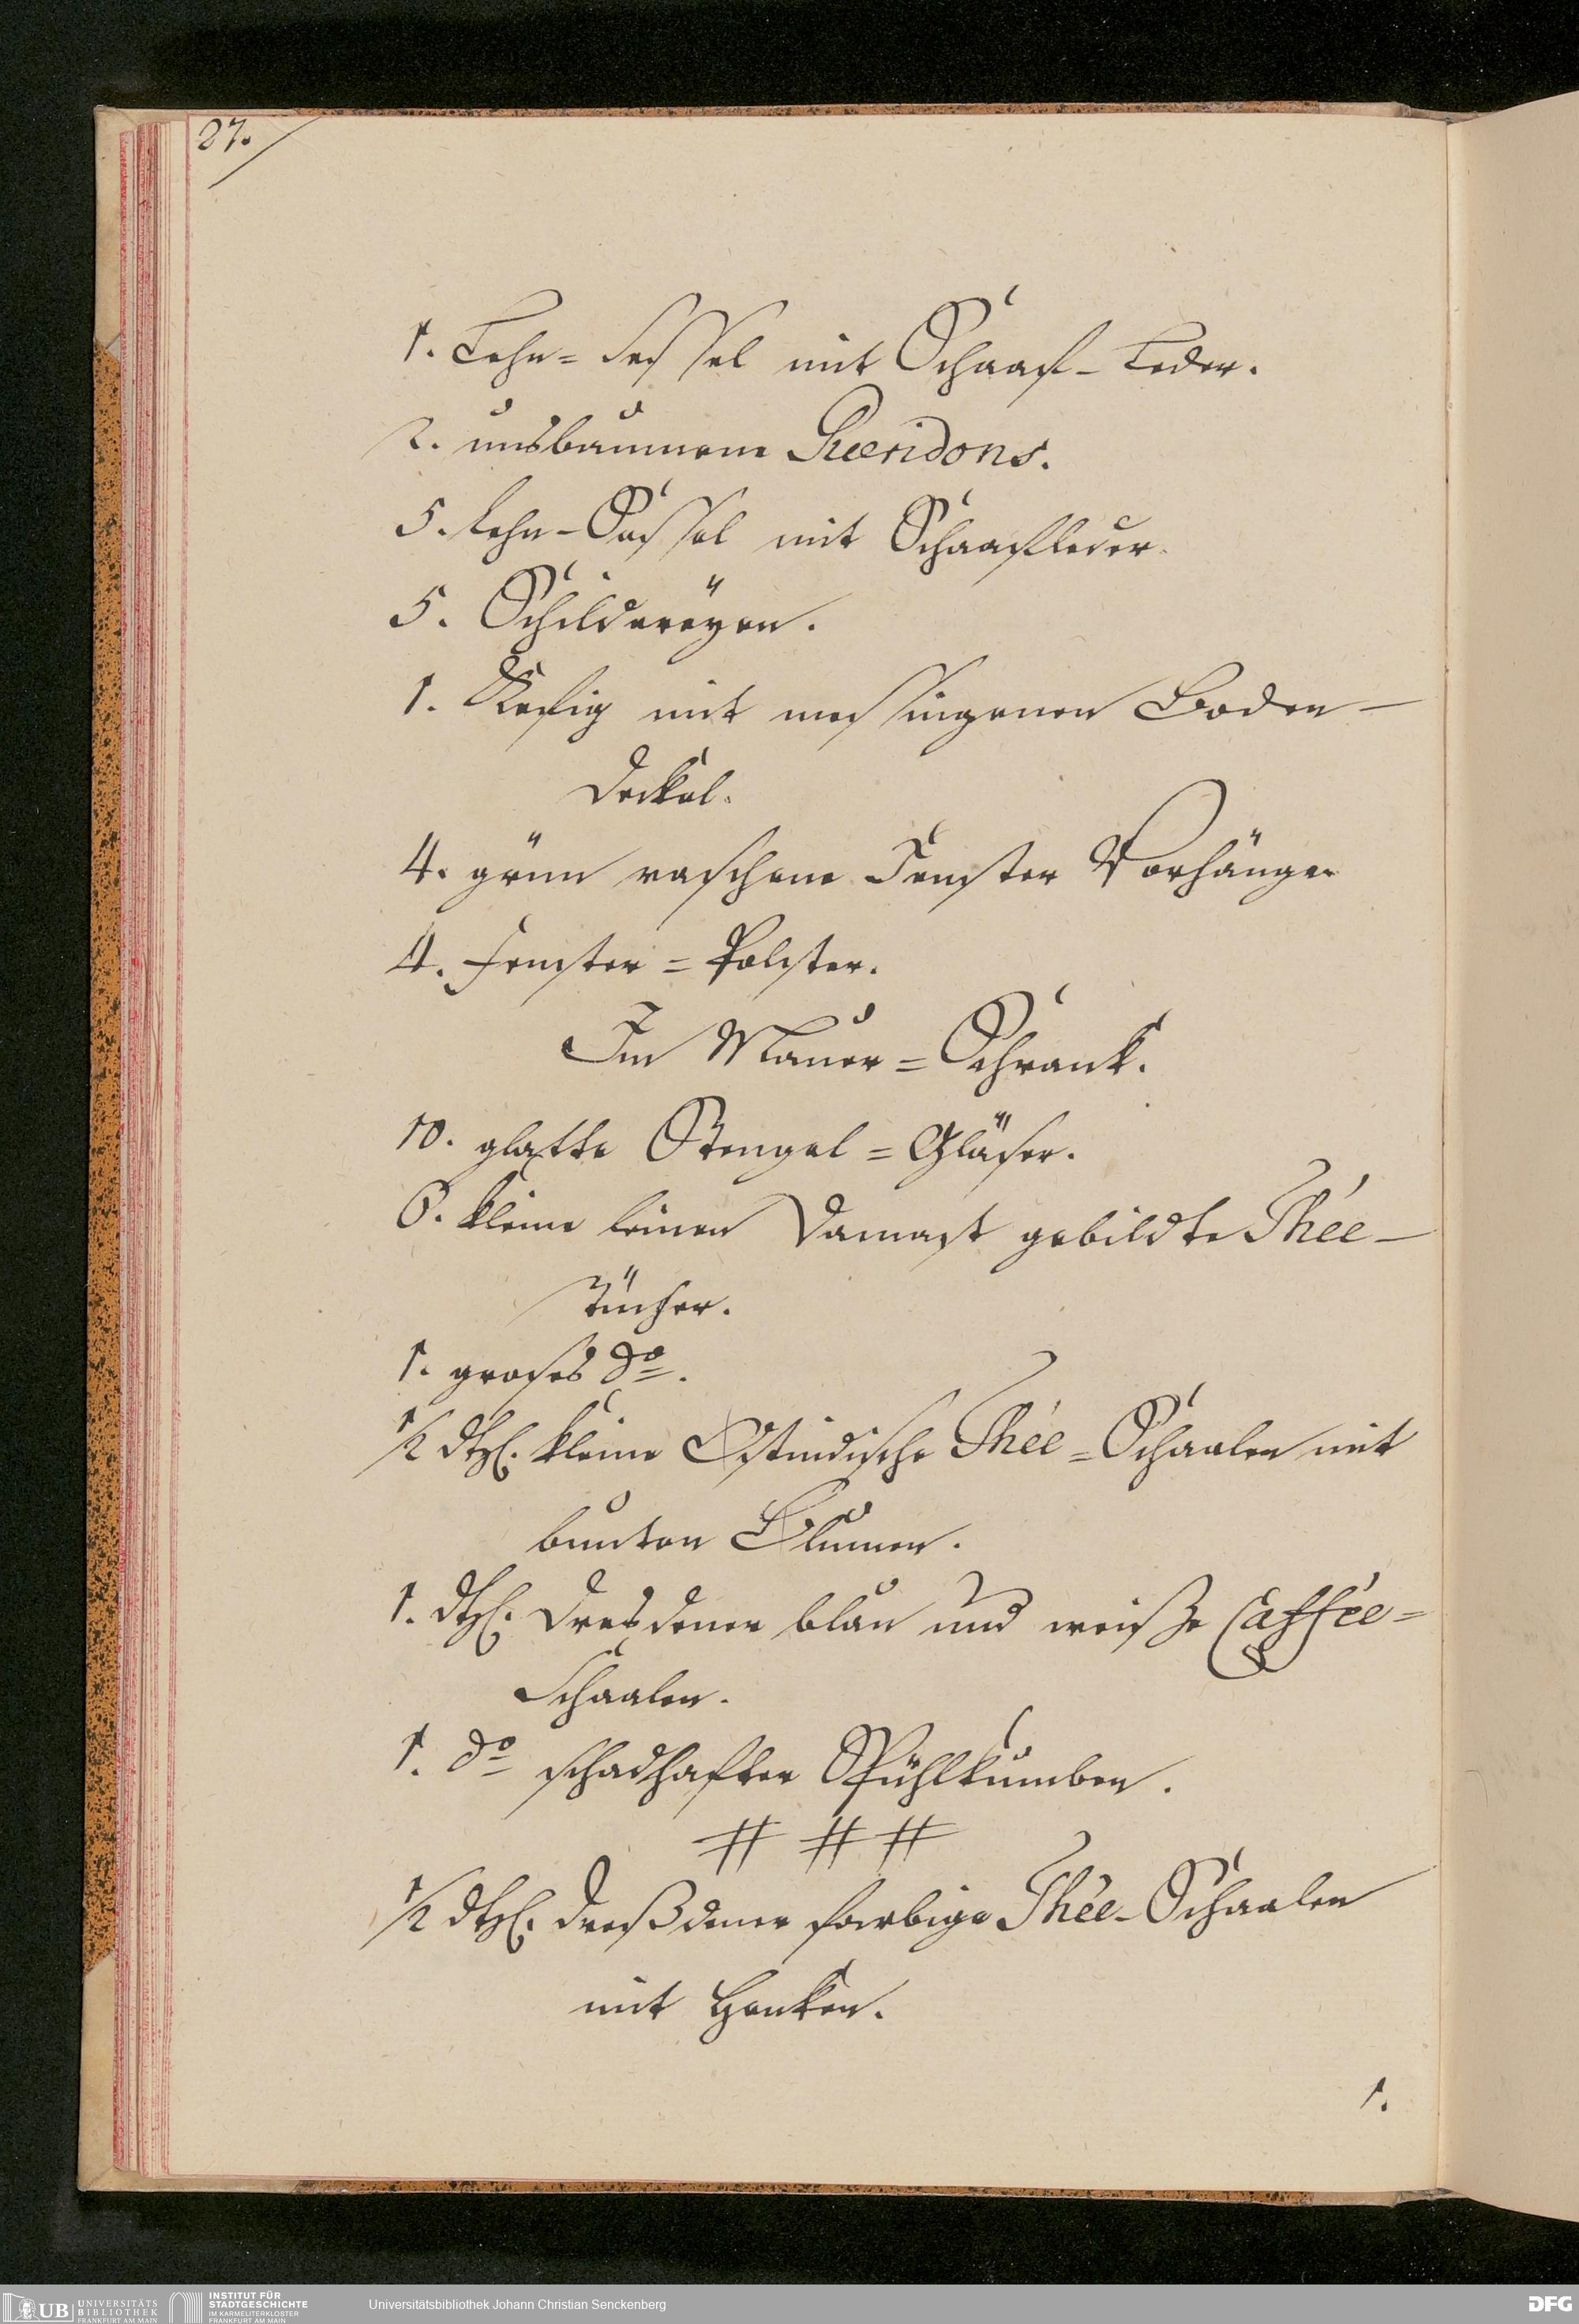 27.
1. Lehn= Sessel mit Schaaf- Leder.
2. nusbaumene Gueridons.
5. Lehn-Sessel mit Schaafleder.
5. Schildereÿen.
1. Kefig mit messingenen Boden-
Deckel.
4. grün raschene Fenster Vorhänge
4. Fenster = Polster.
Im Mauer = Schrank.
10. glatte Stengel = Gläser.
6. kleine leinen Damast gebildte Thée-
Tücher.
1. groses do.
1/2 dtzl. kleine Ostindische Thée = Schaalen mit
bunten Blumen.
1. dtzl. Dresdener blau und weisse Caffée=
Schaalen.
1. do schadhafter Spühlkumben.
# # #
1/2 dtzl. Dreßdener farbige Thée-Schaalen
mit Henken.
1.
UB UNIVERSITÄTS
BIBLIOTHEK
FRANKFURT AM MAIN
INSTITUT FÜR
STADTGESCHICHTE
IM KARMELITERKLOSTER
FRANKFURT AM MAIN
Universitätsbibliothek Johann Christian Senckenberg
DFG